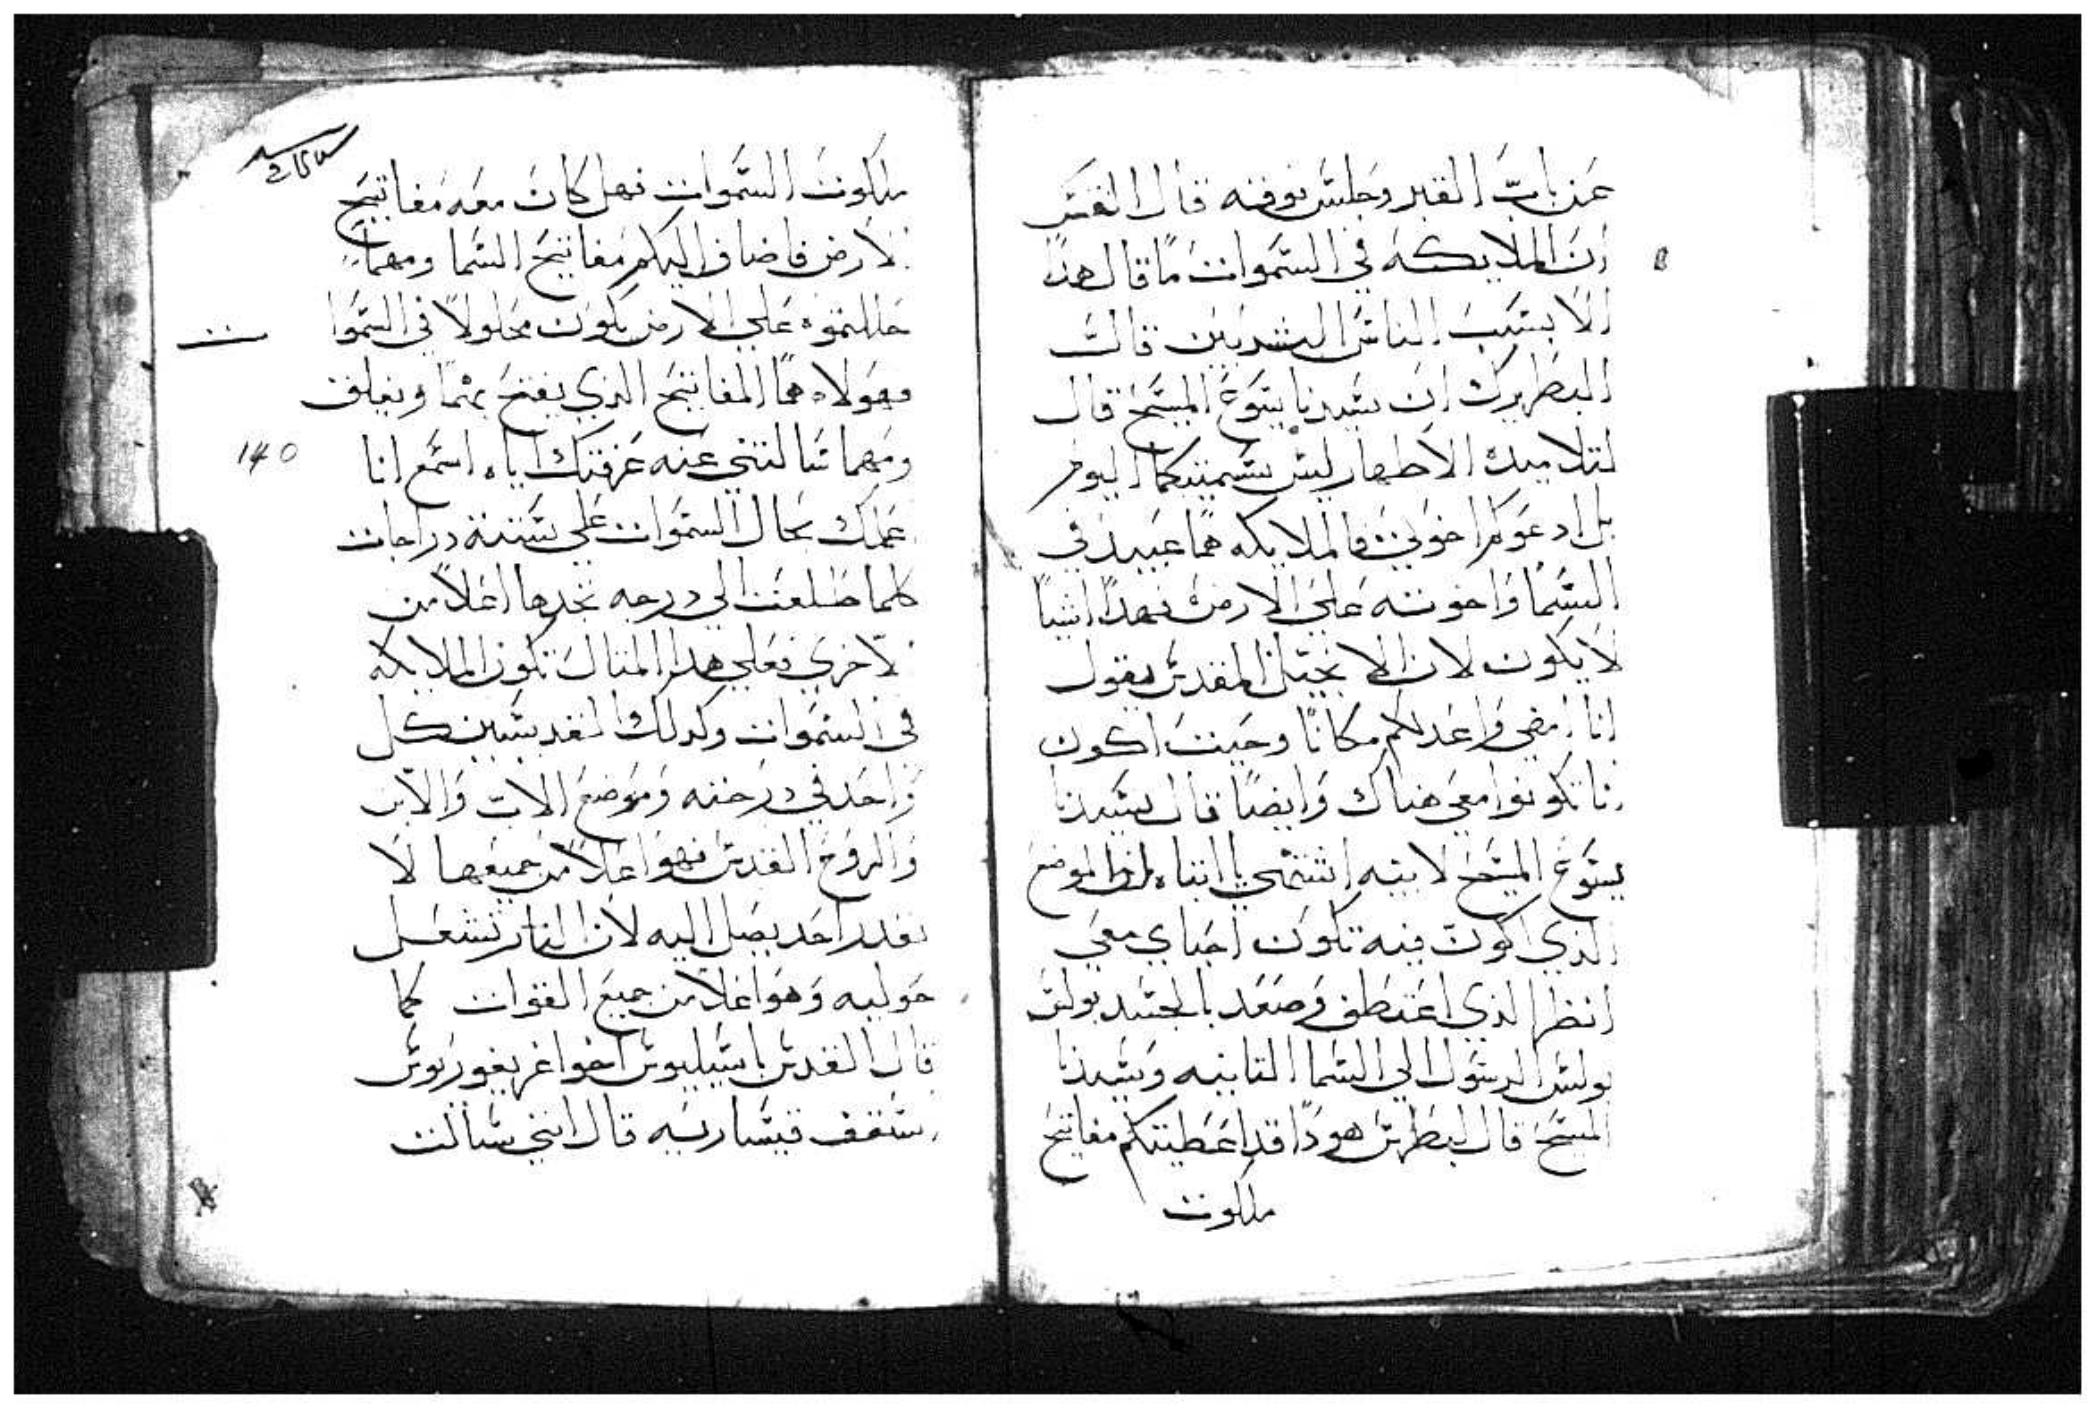 عن باب القبر وجلس فوقه قال القس
ان الملايكه في السموات ما قال هدا
الا بسبب الناس البشريين قال
البطريرك ان سيدنا يسوع المسيح قال
لتلاميده الاطهار ليس سميتكما اليوم
بل ادعوكم اخوتي فالملايكه هما عبيد في
السما واخوته علي الارض فهدا اشيا
لا يكون لان الانجيل المقدس يقول
انا امضي واعد لكم مكانا وحيت اكون
انا تكونوا معي هناك وايضا قال سيدنا
يسوع المسيح لابيه اشتهي يا ابتاه الموضع
الذي اكون فيه تكون احباي معي
انظر الذي اختطف وصعد بالجسد بولس
بولس الرسول الي السما التانيه وسيدنا
المسيح قال لبطرس هودا قد اعطيتكم مفاتيح
ملكوت
ملكوت السموات فهل كان معه مفاتيح
الارض فاضاف اليكم مفاتيح السما ومهما
حللتموه علي الارض يكون محلولا في السموا
ت
فهولاء هما المفاتيح الذي يفتح بهما ويغلق
140
ومهما سالتني عنه عرفتك اياه اسمع انا
اعملك بحال السموات علي ستة دراجات
كلما طلعت الي درجه تجدها اعلا من
الاخري فعلي هدا المتال تكون الملايكه
في السموات وكدلك القديسين كل
واحد في درجته وموضع الاب والابن
والروح القدس فهو اعلا من جميعها لا
يقدر احد يصل اليه لان النار تشعل
حواليه وهو اعلا من جميع القوات كما
قال القديس باسيليوس اخوا غريغوريوس
اسقف قيساريه قال انني سالت